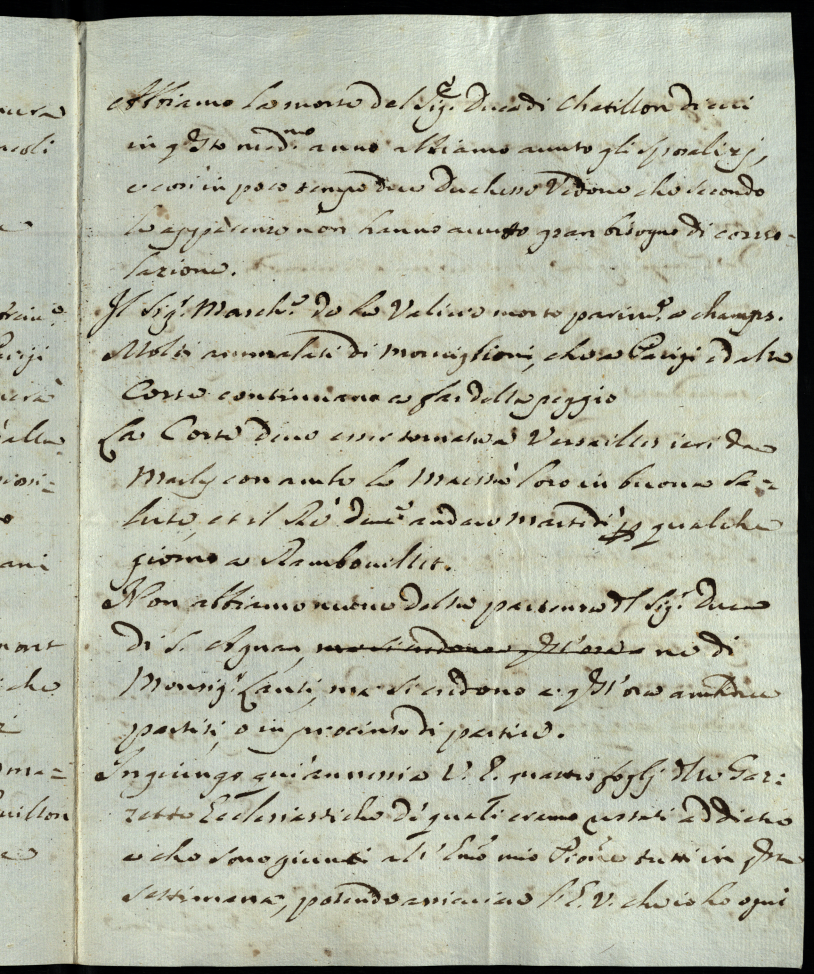 Abbiamo la morte del Sigr. Duca di Chatillon di cui
in qsto medmo. anno abbiamo avuto gli sposalizj,
e così in poco tempo due Duchesse Vedove che secondo
le apparenze non hanno avuto gran bisogno di conso-
lazione.
Il Sigr. March.e de la Valiere morto parimte. a champs.
Molti ammalati di Morviglioni, che a Parigi ed alla
Corte continuano a far della peggio
La Corte deve esser tornata a Versailles ieri da
Marly con ambe le Maestà loro in buona sa=
lute, et il Rè deve andare Martedì p qualche
giorno a Rambouillet.
Non abbiamo nuove della partenza dl Sigr. Duca
di S. Agnan, ne di
Monsigr. Lanti, ma si credono a qst'ora ambedue
partiti, o in procinto di partire.
Ingiungo qui annessi a V. E. quattro foglj dlle Gaz=
zette Ecclesiastiche de' quali eramo restati addietro
e che sono giunti all' Emo. mio Prone. tutti in qsta
settimana, potendo assicurare l'E. V. che io ho ogni